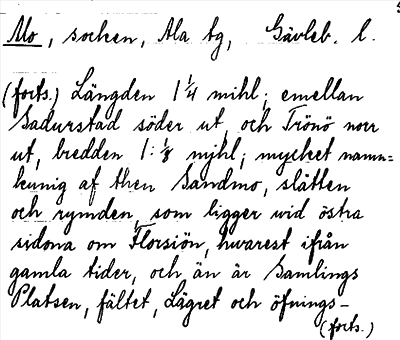 Mo, socken, Ala tg, Gävleb. l.
(forts.) Längden 1 1/4 mihl; emellan
Sadurstad söder ut, och Trönö norr
ut, bredden 1:1/8 mijhl; mycket namn=
kunig af then Sandmo, slätten
och rymden, som ligger wid östra
sidona om Florsiön, hwarest ifrån
gamla tider, och än är Samlings
Platsen, fältet, Lägret och öfnings-
(forts.)